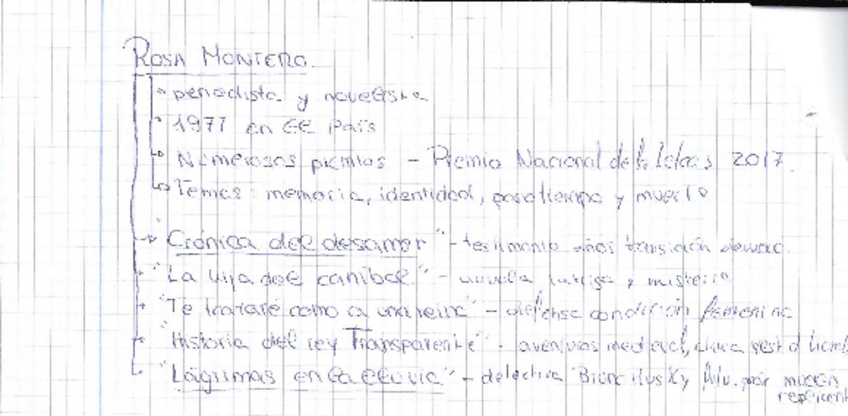 ROSA MONTERO.
periodista y novelista
1977 en El País
Numerosos premios - Premio Nacional de las Letras 2017.
Temas: memoria, identidad, paso tiempo y muerte
"Crónica del desamor" - testimonio años transición democ.
"La hija del caníbal" - novela intriga y misterio
"Te trataré como a una reina" - defensa condición femenina
"Historia del rey Transparente" - aventuras medieval,
"Lágrimas en la lluvia" - detective Bruna Husky por muerte
replicant